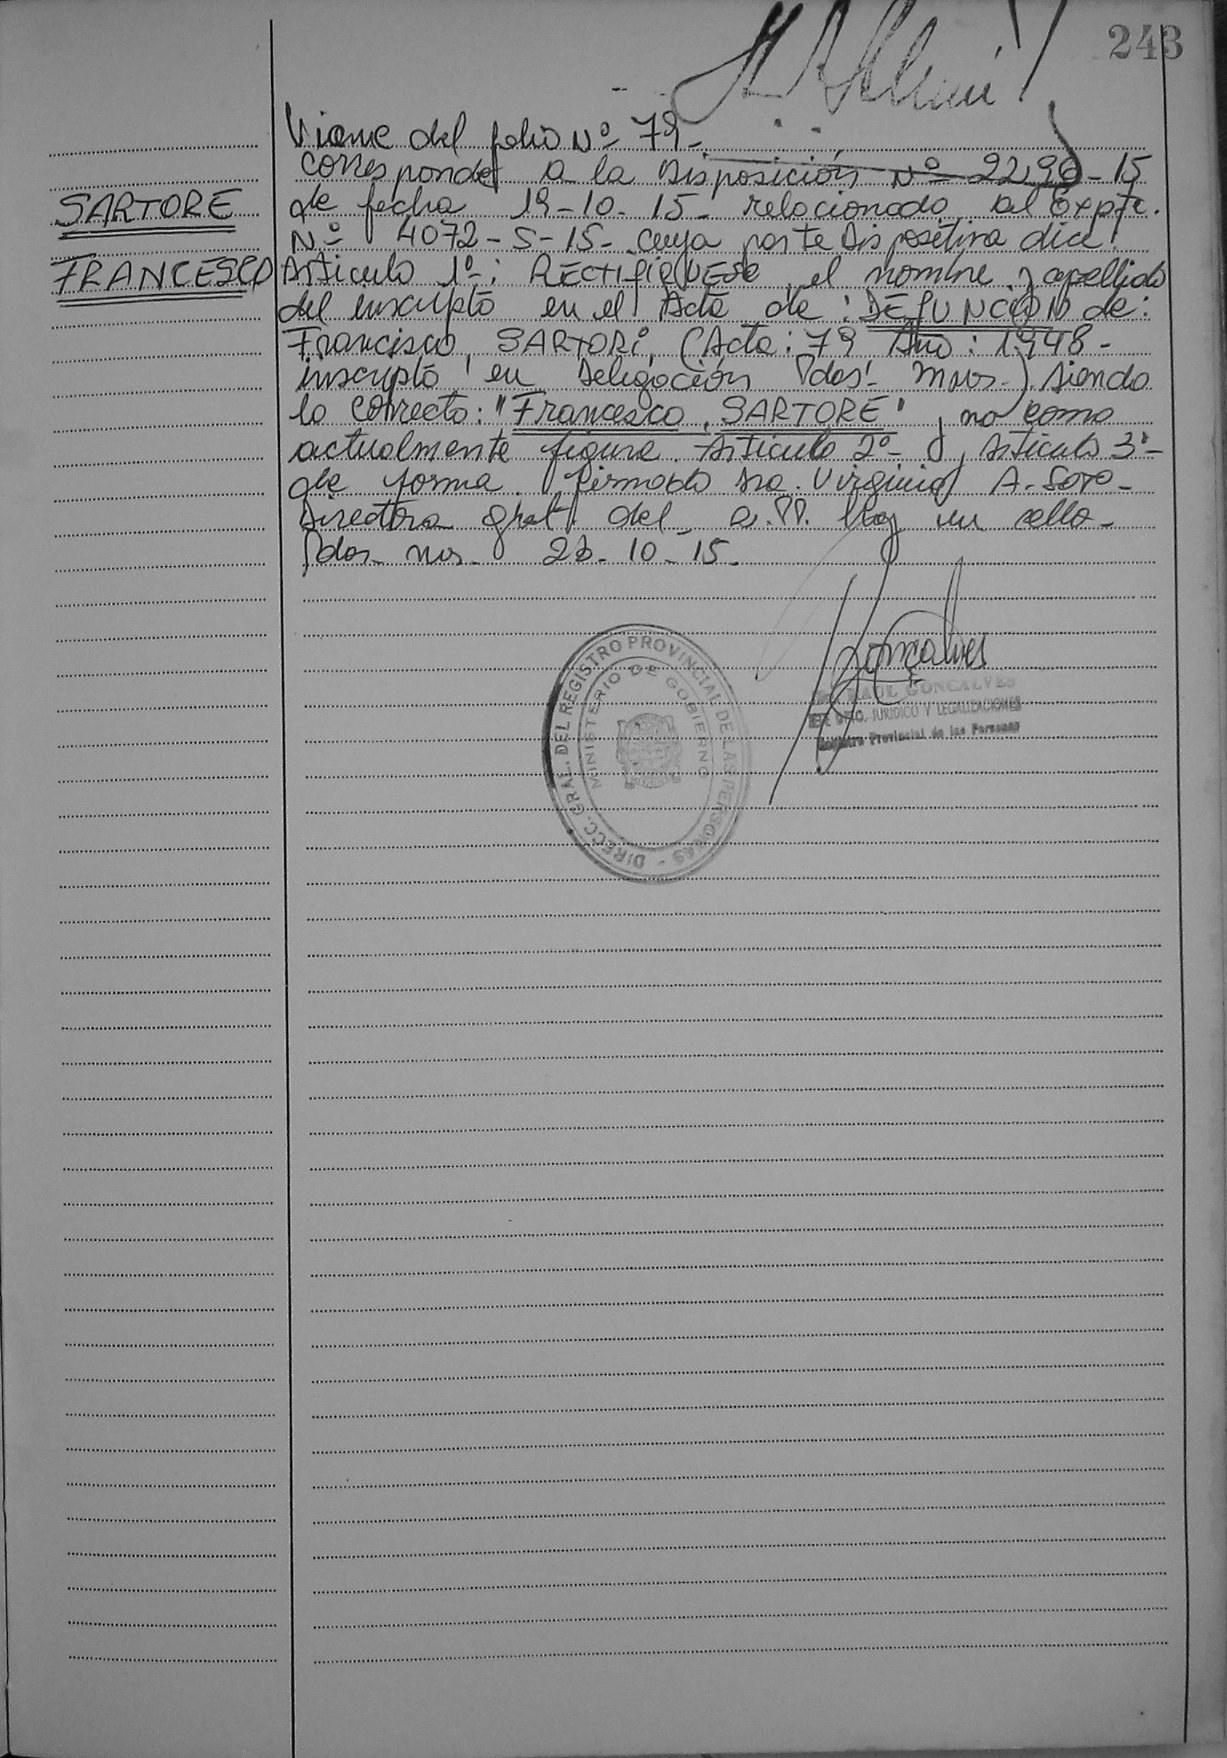 243
Viene del folio Nº 79-
corresponde a la Disposición Nº 2296-15
SARTORE
de fecha 19-10-15- relacionado al Expte.
Nº 4072-S-15- cuya parte dispositiva dice:
FRANCESCO
Articulo 1º-: RECTIFIQUESE el nombre y apellido
del inscripto en el Acta de: DEFUNCION de:
Francisco, SARTORI, (Acta: 79 Año: 1948-
inscripto en Delegación Pdas- Mnes-) siendo
lo correcto: "Francesco, SARTORE", no como
actualmente figura. Articulo 2º- y Articulo 3º-
de forma. firmado Sra. Virginia A. Soto-
Directora Gral del R.P.P. Hay un sello-
Pdas- 10-15-
Goncalves
RAUL GONCALVES
JEFE DPTO. JURIDICO Y LEGALIZACIONES
Registro Provincial de las Personas
DIRECC. GRAL. DEL REGISTRO PROVINCIAL DE LAS PERSONAS -
MINISTERIO DE GOBIERNO